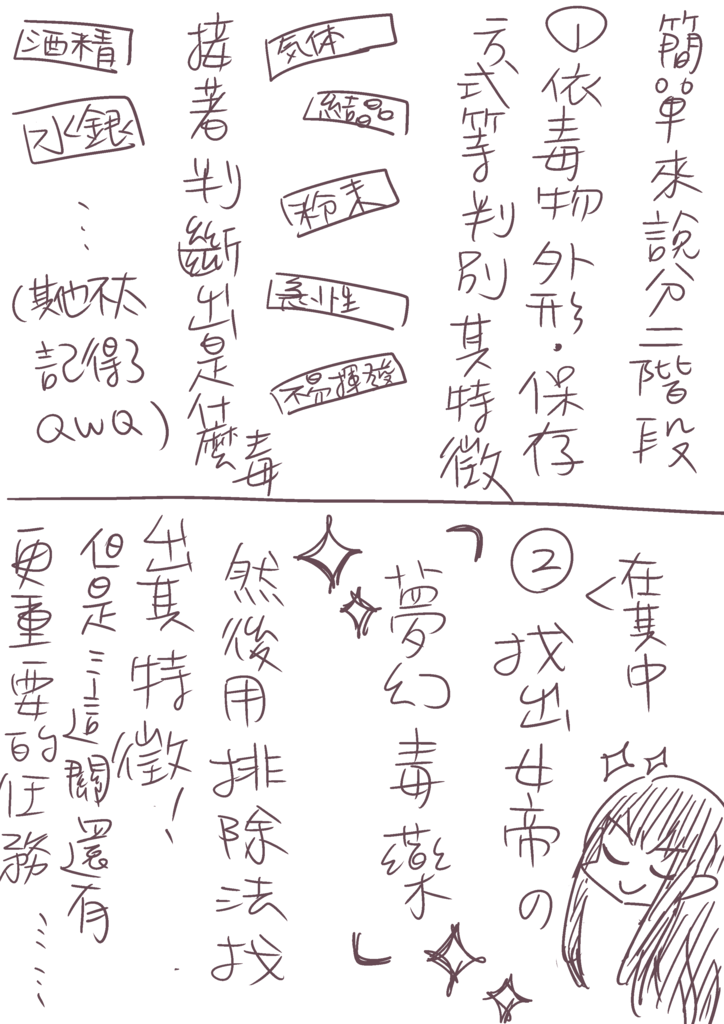 簡單來說分二階段
①依毒物外形・保存
方式等判別其特徵
気体
結晶
粉末
急性
不易揮發
接著判斷出是什麼毒
酒精
水銀
…
(其他不太
記得了
QWQ)
在其中
②找出女帝の
「夢幻毒藥」
然後用排除法找
出其特徵!
但是…這關還有
更重要的任務……